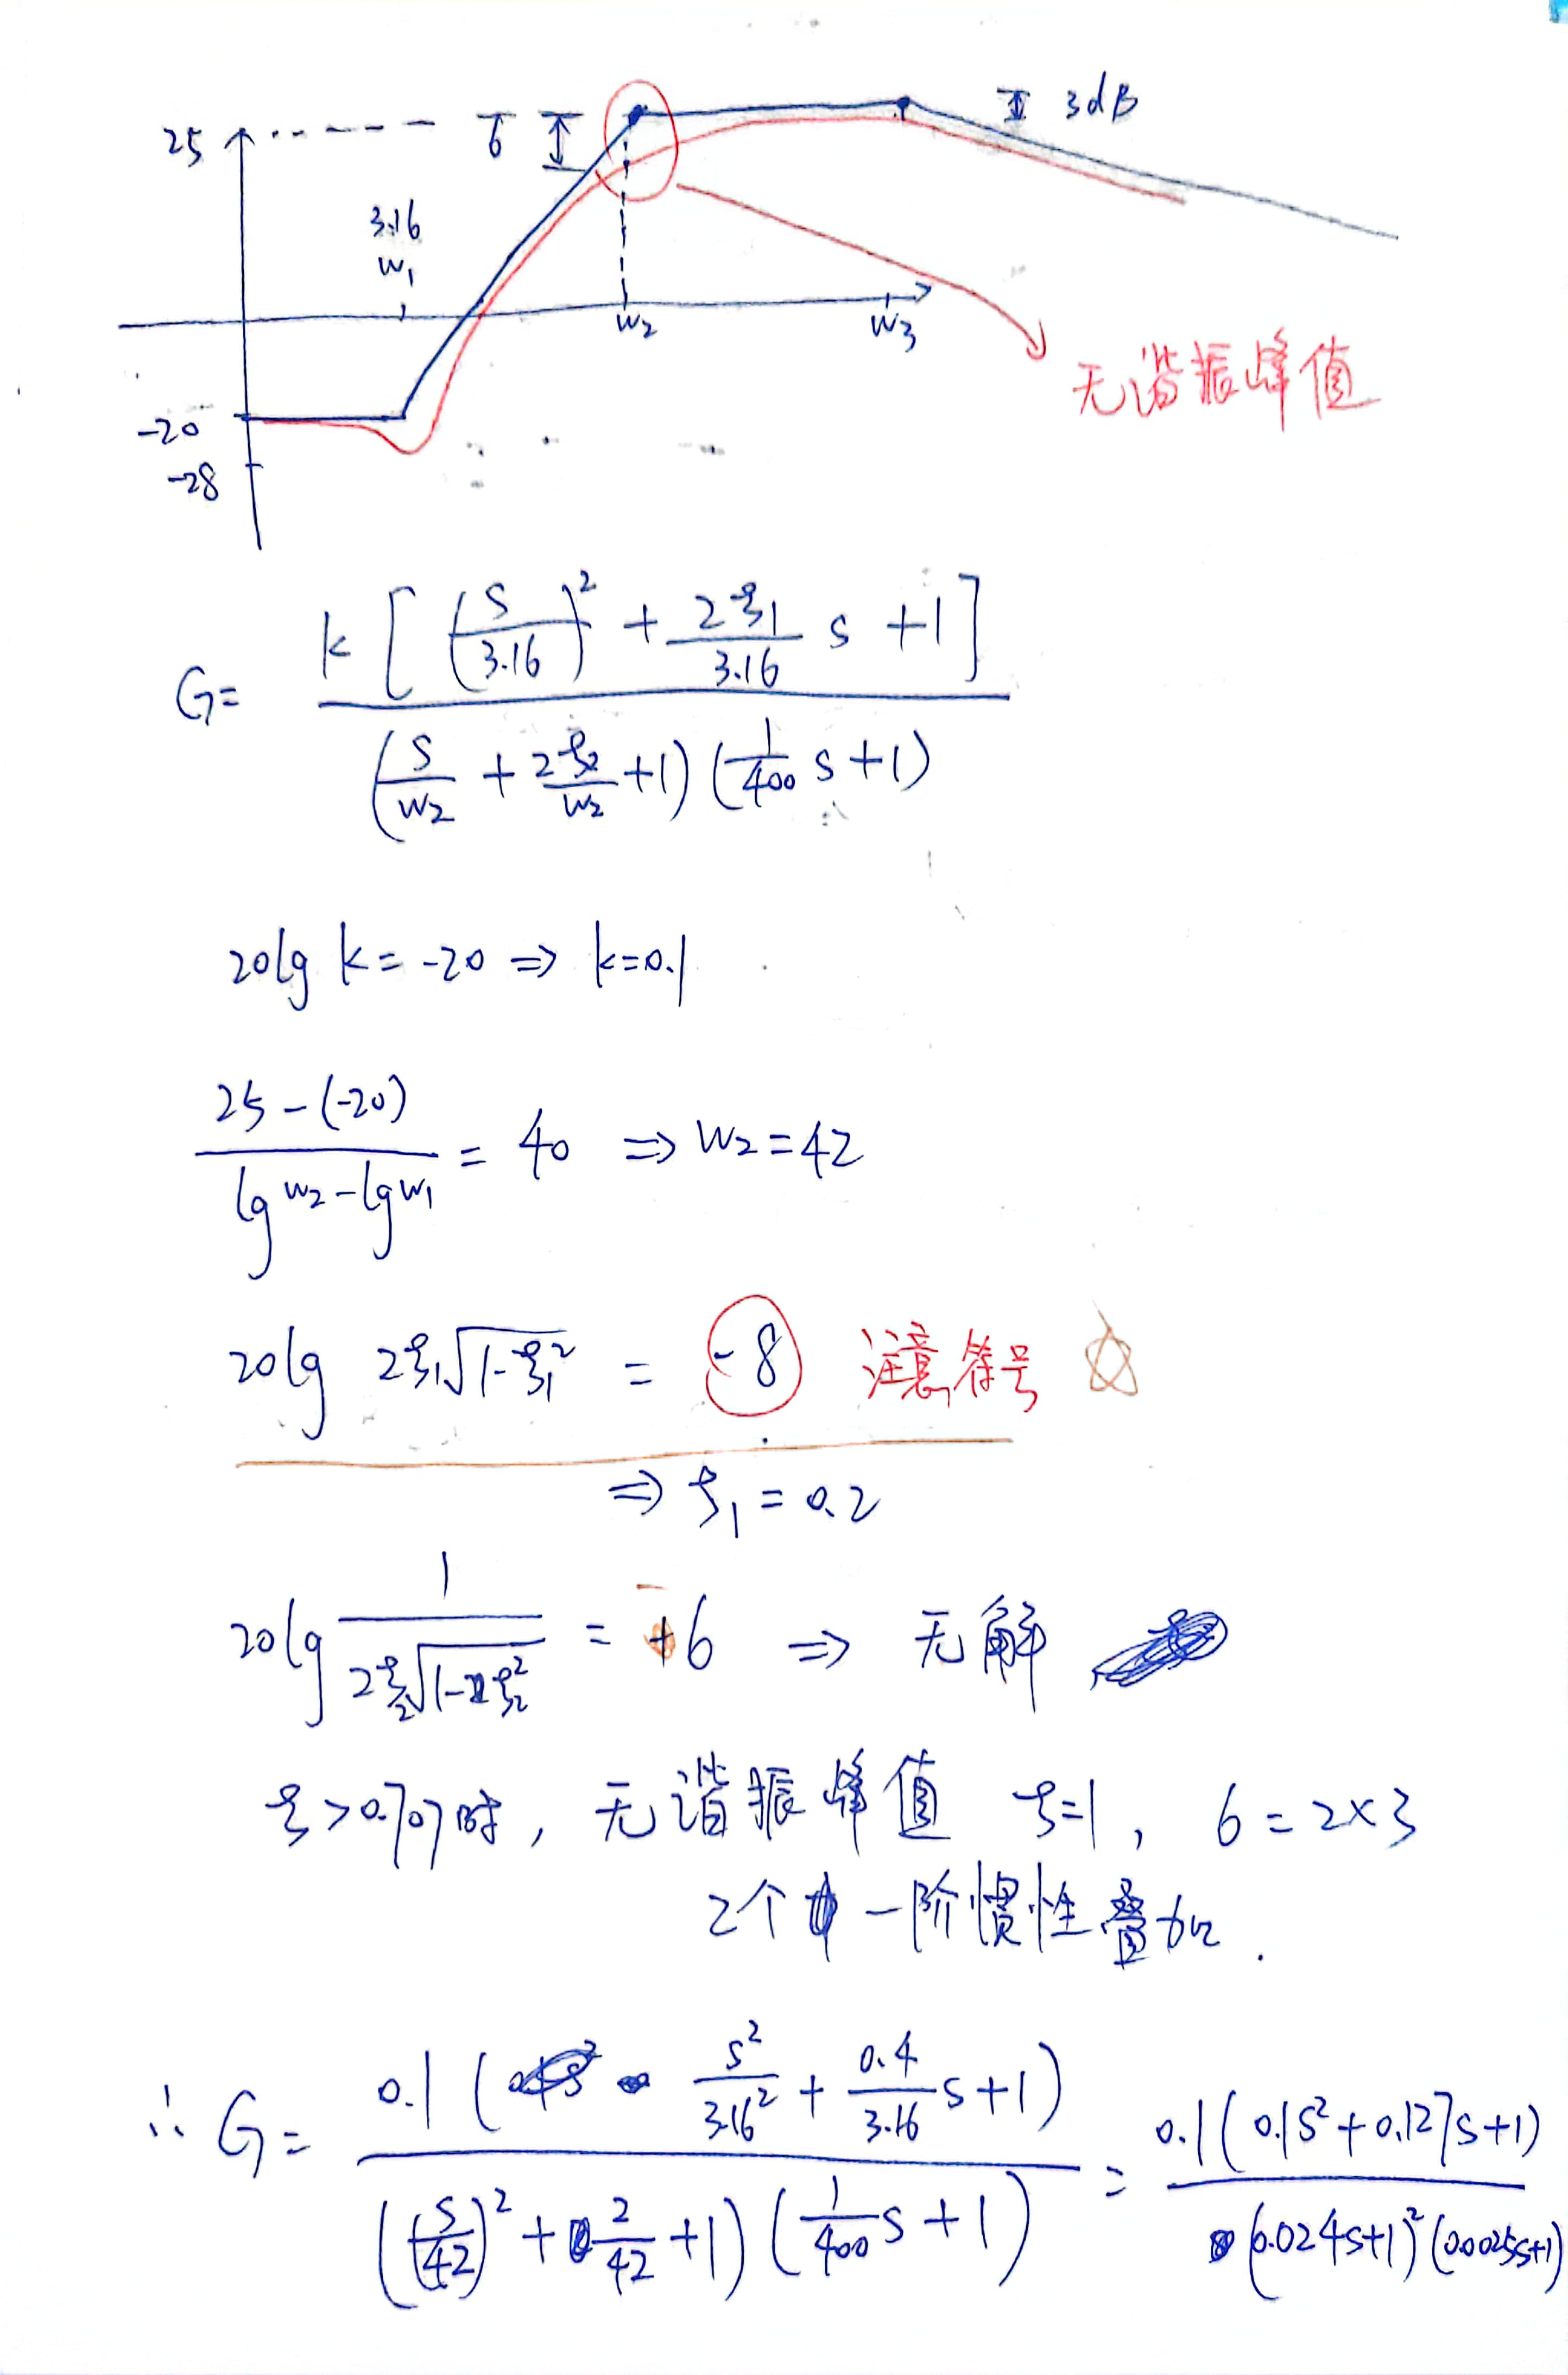 25 6 3dB
3.16
w₁
w₂ w₃
无谐振峰值
-20
-28
G= k[(s/3.16)² + 2ξ₁/3.16 s +1] / (s/w₂ + 2ξ₂/w₂ +1)(1/400 s+1)
20lg k=-20 ⇒ k=0.1
25-(-20) / lg w₂-lg w₁ = 40 ⇒ w₂=42
20lg 2ξ₁√1-ξ₁² = -8 注意符号 ☆
⇒ ξ₁=0.2
20lg 1/2ξ₂√1-ξ₂² = -6 ⇒ 无解
ξ>0.707时, 无谐振峰值 ξ=1, 6=2×3
2个一阶惯性叠加.
∴ G= 0.1(s²/3.16² + 0.4/3.16 s+1) / ((s/42)² + 2/42 +1)(1/400 s+1) = 0.1(0.1s²+0.127s+1) / (0.024s+1)²(0.0025s+1)